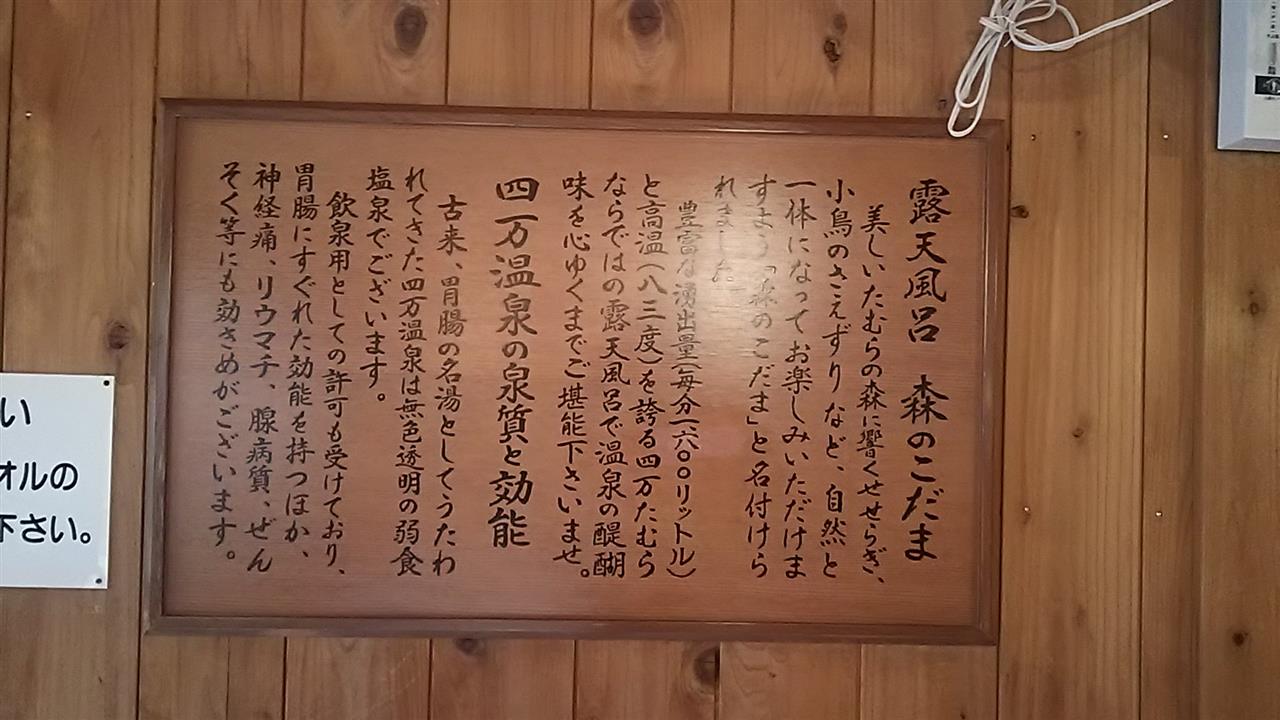 露天風呂　森のこだま
美しいたむらの森に響くせせらぎ、
小鳥のさえずりなど、自然と
一体になってお楽しみいただけま
すよう「森のこだま」と名付けら
れました。
豊富な湧出量(毎分一六〇〇リットル)
と高温(八三度)を誇る四万たむら
ならではの露天風呂で温泉の醍醐
味を心ゆくまでご堪能下さいませ。
四万温泉の泉質と効能
古来、胃腸の名湯としてうたわ
れてきた四万温泉は無色透明の弱食
塩泉でございます。
飲泉用としての許可も受けており、
胃腸にすぐれた効能を持つほか、
神経痛、リウマチ、腺病質、ぜん
そく等にも効きめがございます。
い
オルの
下さい。